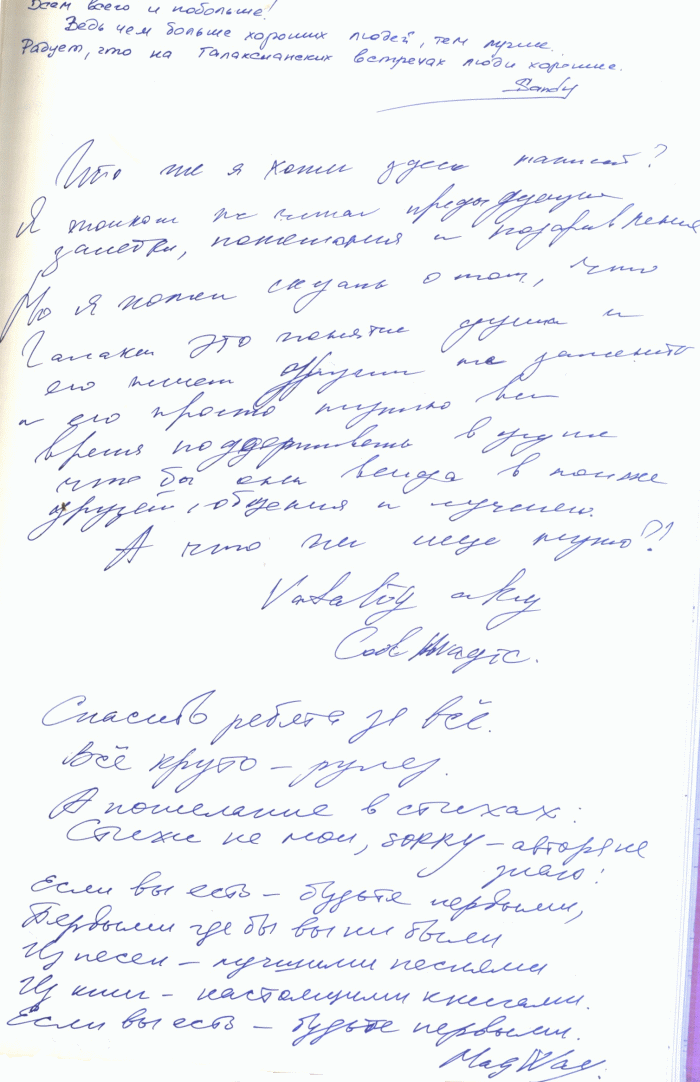 Всем всего и побольше!
Ведь чем больше хороших людей, тем лучше.
Радует, что на Галаксианских встречах люди хорошие.
Sandy
Что же я хотел здесь написать?
Я только не читал предыдущие
заметки, пожелания и поздравления
Но я хотел сказать о том, что
Галакси это понятие души и
его ничем другим не заменить
и его просто нужно все
время поддерживать в душе
что бы они всегда в
друзей, общения и лучшего.
А что же еще нужно?!
Vatality aka
Code Magic.
Спасибо ребята за всё.
Всё круто – рулез.
А пожелание в стихах:
Стихи не мои, sorry – автора не
знаю:
Если вы есть – будьте первыми,
Первыми где бы вы ни были
Из песен – лучшими песнями
Из книг – настоящими книгами.
Если вы есть – будьте первыми.
MagWay.